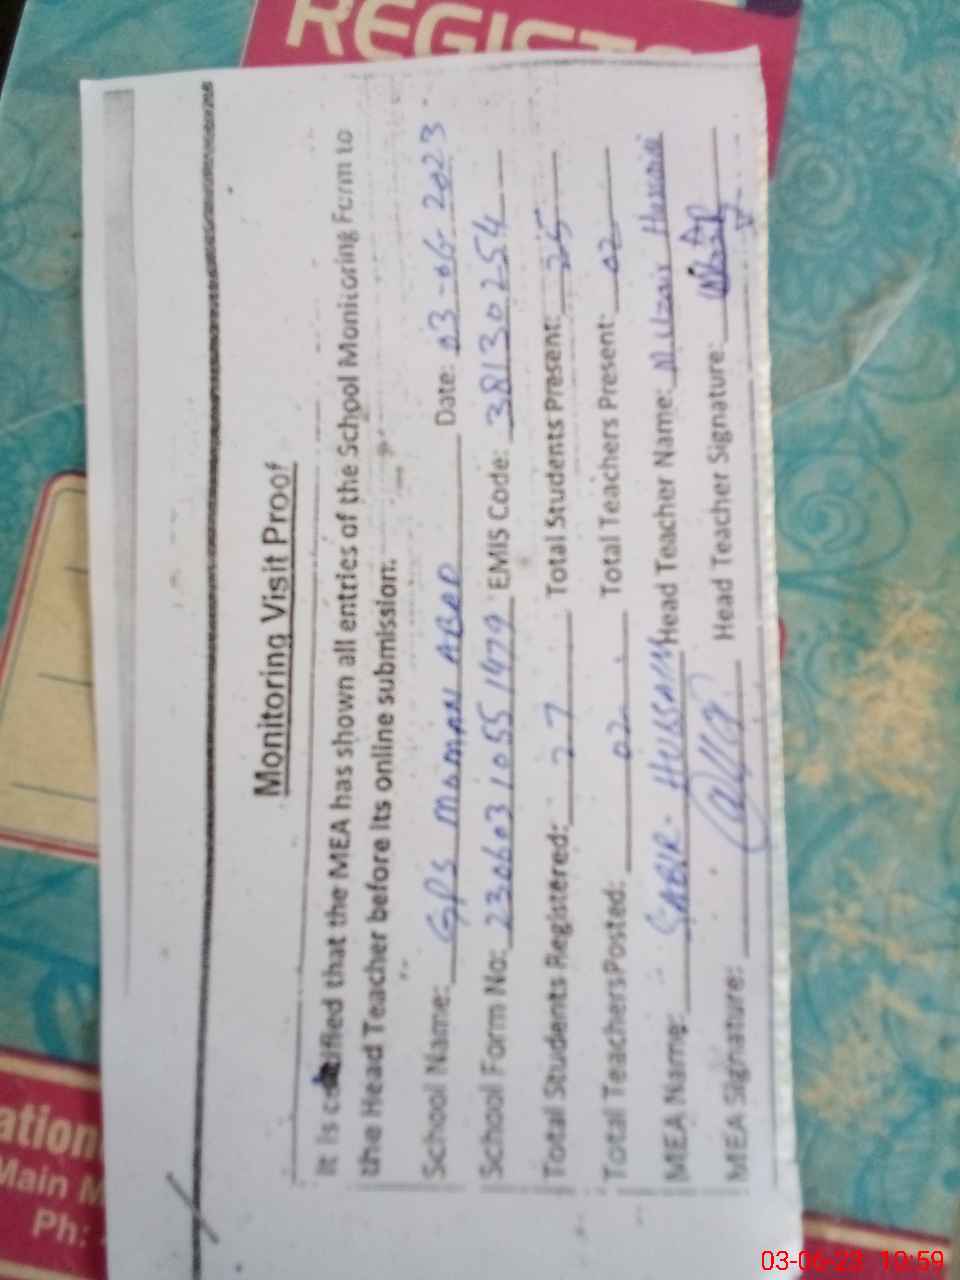 REGIST
Monitoring Visit Proof
It is certified that the MEA has shown all entries of the School Monitoring Form to
the Head Teacher before its online submission.
School Name: GPS MOMAN ABAD Date: 03-06-2023
School Form No: 23060310551479 EMIS Code: 38130254
Total Students Registered: 27 Total Students Present: 25
Total Teachers Posted: 02 Total Teachers Present: 02
MEA Name: SABIR HUSSAIN Head Teacher Name: M Uzair Hussain
MEA Signature: Head Teacher Signature:
ation
Main M
Ph:
03-06-23 10:59